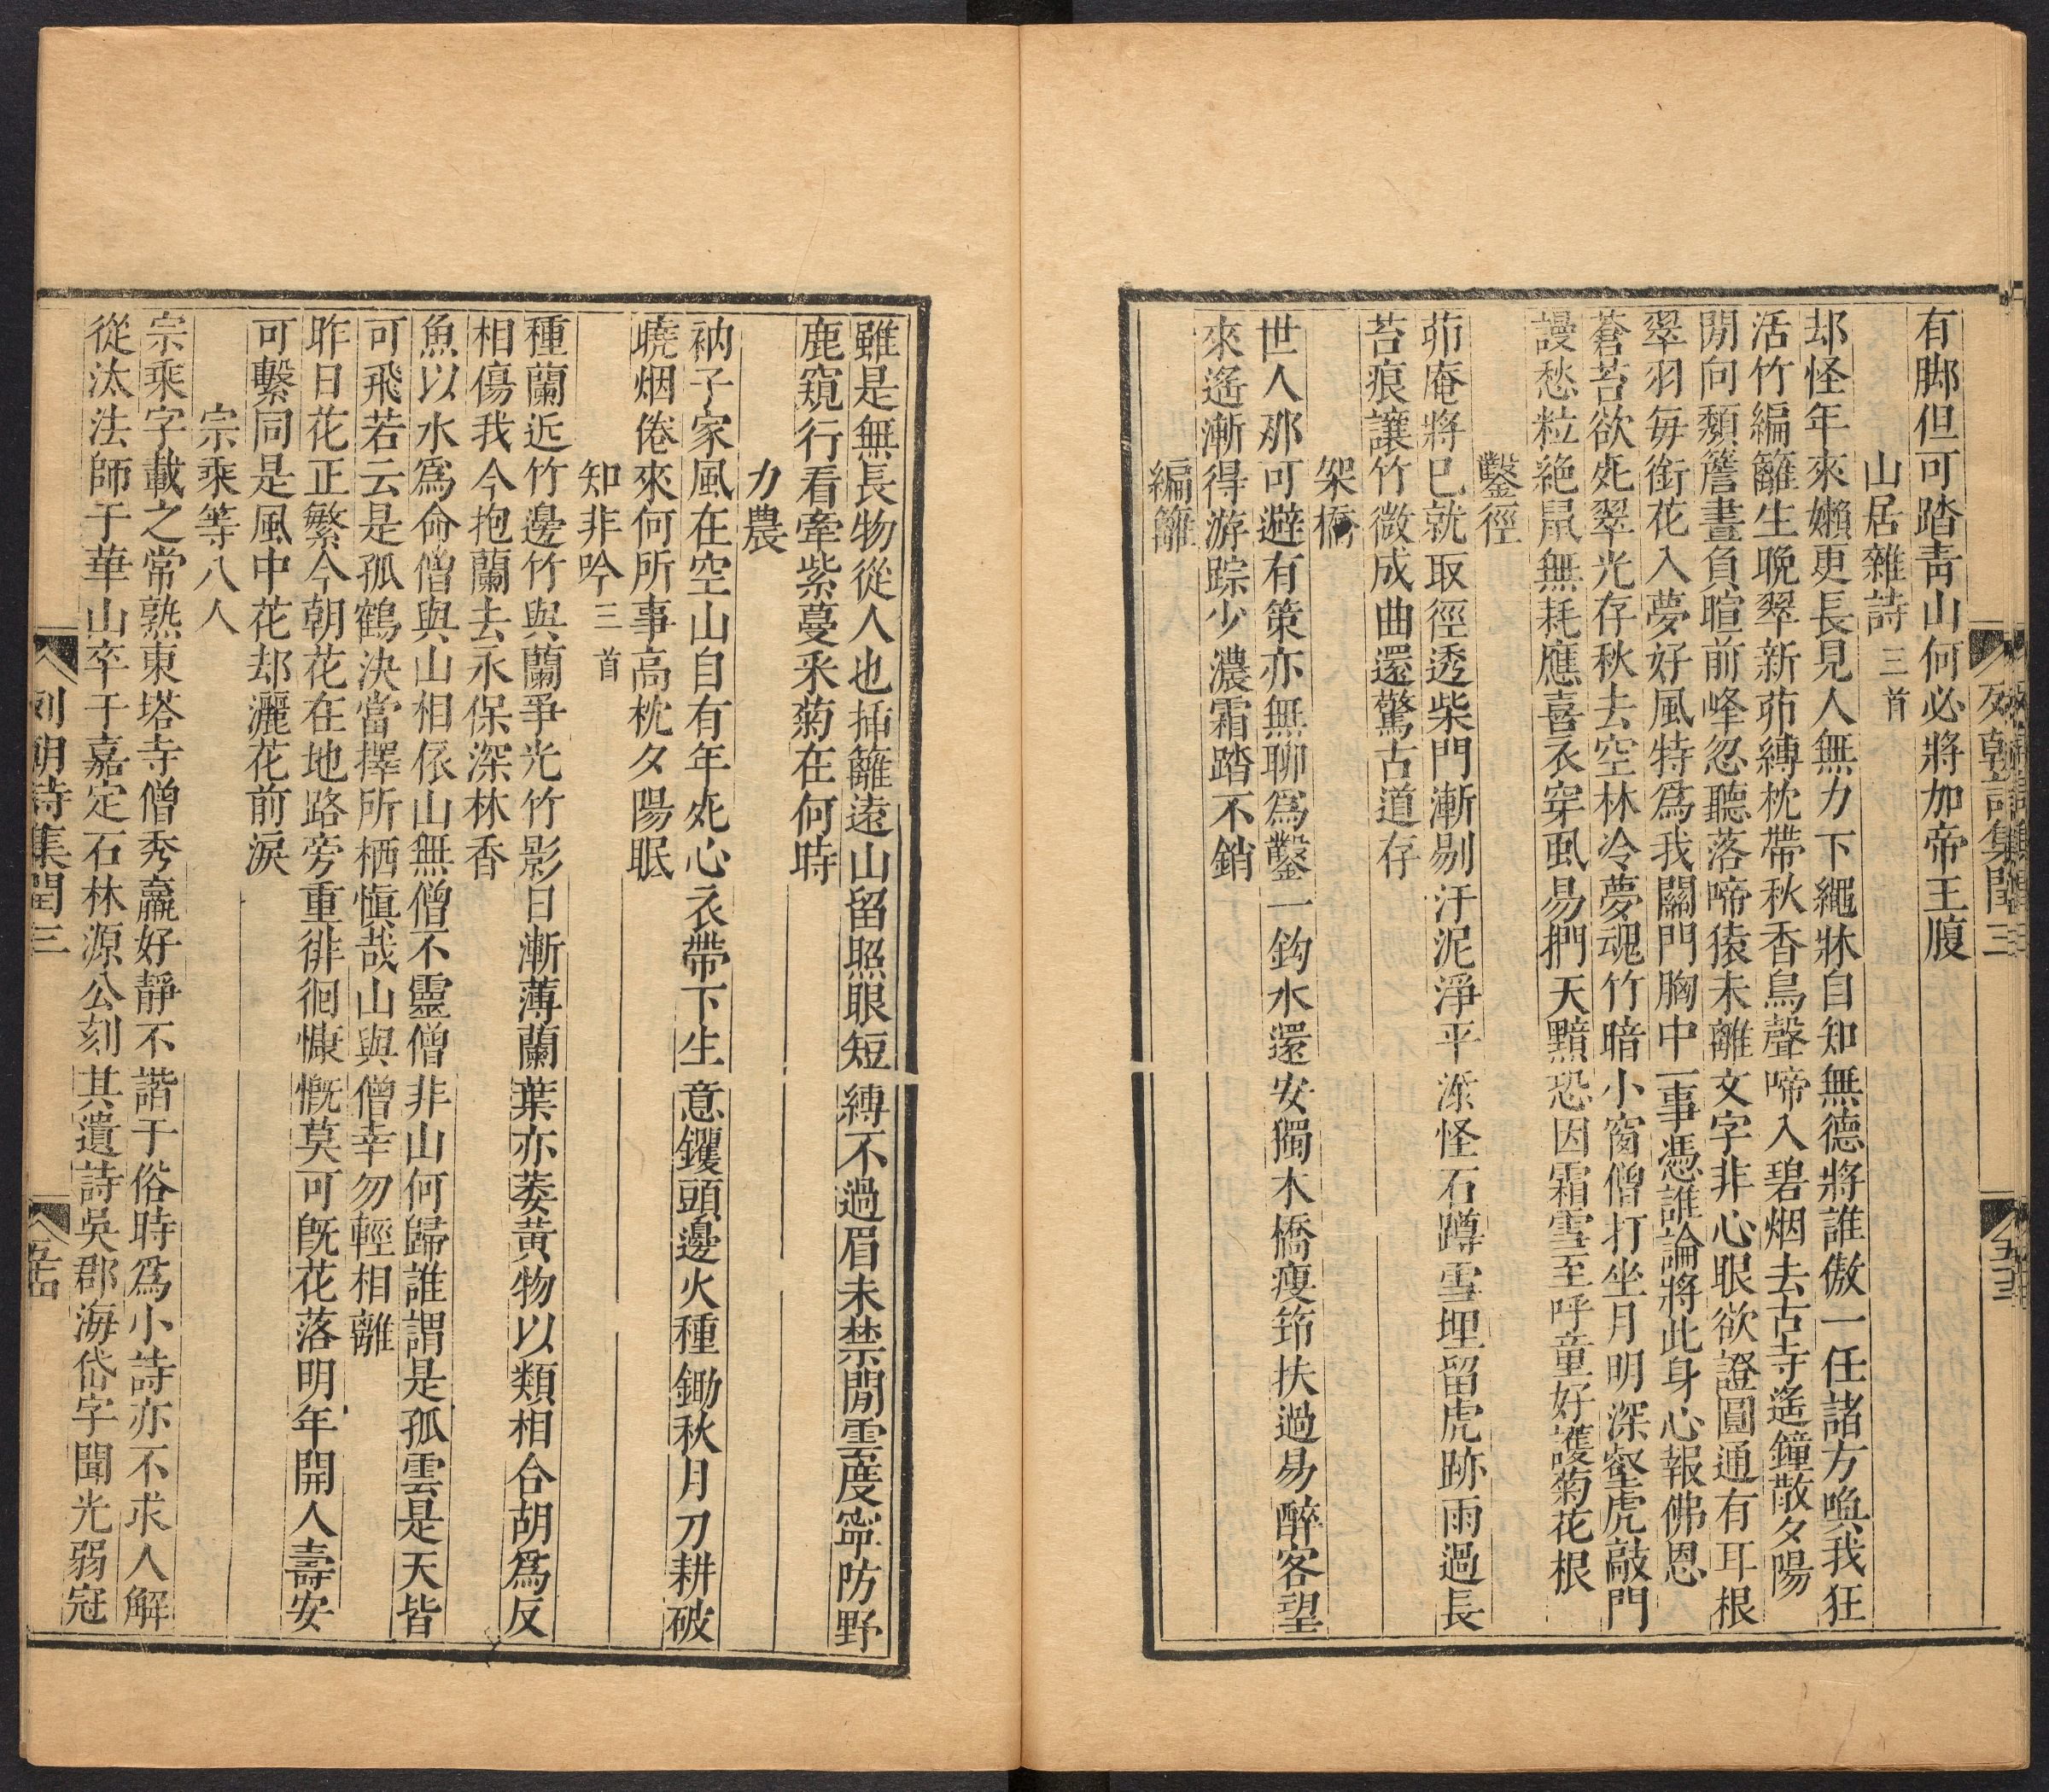 列朝詩集閏三
五十三
有脚但可踏靑山何必將加帝王腹
山居雜詩三首
却怪年來嬾更長見人無力下繩牀自知無德將誰傲一任諸方喚我狂
活竹編籬生晚翠新茆縛枕帶秋香鳥聲啼入碧烟去古寺遙鐘散夕陽
閒向頹簷晝負暄前峰忽聽落啼猿未離文字非心眼欲證圓通有耳根
翠羽每銜花入夢好風特爲我關門胸中一事憑誰論將此身心報佛恩
蒼苔欲死翠光存秋去空林冷夢魂竹暗小窗僧打坐月明深壑虎敲門
謾愁粒絶鼠無耗應喜衣穿虱易捫天黯恐因霜雪至呼童好護菊花根
鑿徑
茆庵將已就取徑透柴門漸剔汙泥淨平添怪石蹲雪埋留虎跡雨過長
苔痕讓竹微成曲還驚古道存
架橋
世人那可避有策亦無聊爲鑿一鈎水還安獨木橋瘦筇扶過易醉客望
來遙漸得游踪少濃霜踏不銷
編籬
雖是無長物從人也揷籬遠山留照眼短縛不過眉未禁閒雲度寧防野
鹿窺行看牽紫蔓釆菊在何時
力農
衲子家風在空山自有年死心衣帶下生意钁頭邊火種鋤秋月刀耕破
曉烟倦來何所事高枕夕陽眠
知非吟三首
種蘭近竹邊竹與蘭爭光竹影日漸薄蘭葉亦萎黃物以類相合胡爲反
相傷我今抱蘭去永保深林香
魚以水爲命僧與山相依山無僧不靈僧非山何歸誰謂是孤雲是天皆
可飛若云是孤鶴決當擇所栖愼哉山與僧幸勿輕相離
昨日花正繁今朝花在地路旁重徘徊慷慨莫可旣花落明年開人壽安
可繫同是風中花却灑花前淚
宗乘等八人
宗乘字載之常熟東塔寺僧秀羸好靜不諧于俗時爲小詩亦不求人解
從汰法師于華山卒于嘉定石林源公刻其遺詩吳郡海岱字聞光弱冠
列朝詩集閏三
五十四